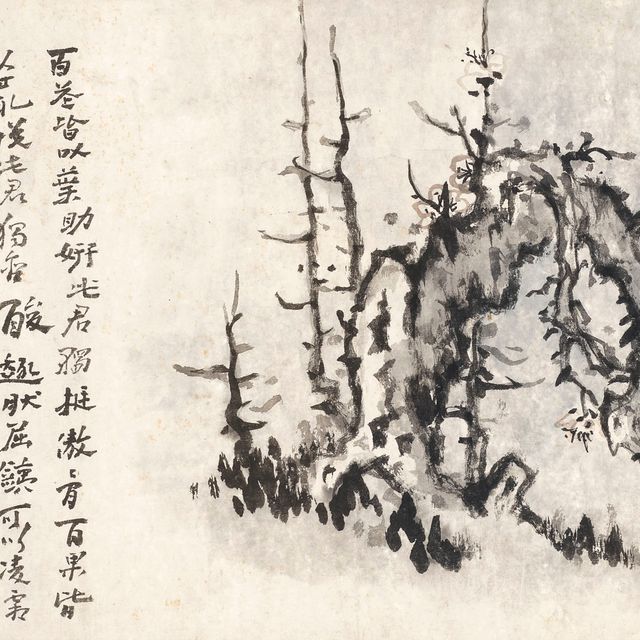 百花皆以葉助妍此君獨挺傲百果皆
此君獨含酸趣狀屈鐵可以凌霜